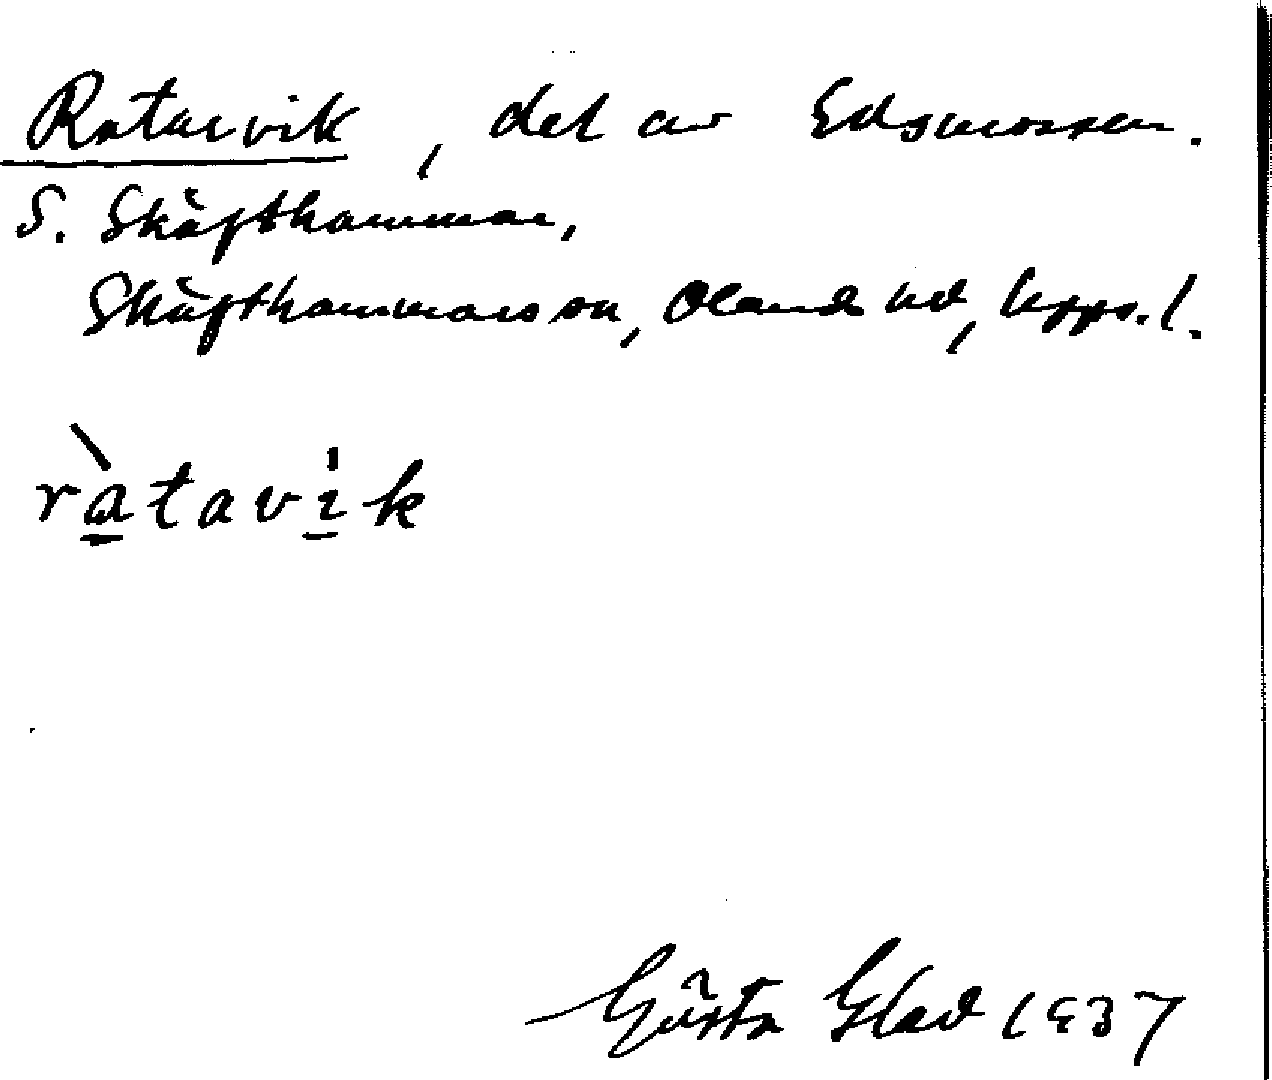 Ratarvik, del av Edsmossen.
S. Skäfthammar,
Skäfthammars sn, Olands hd, Upps. l.
ràtavik
Gösta Glad 1937